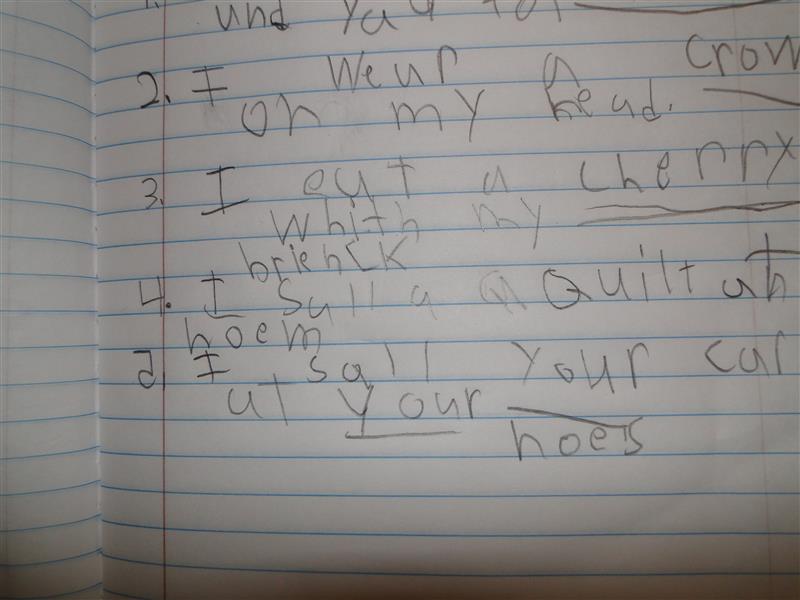 und
2. I wear a crow
on my head.
3. I eat a cherry
whith my
brienck
4. I sall a a Quilt at
hoem
5. I sall your car
at your
hoes